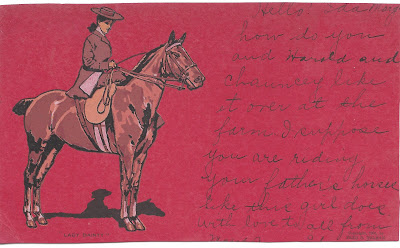 Hello
how do you
and Harold and
chauncey like
it over at the
farm I suppose
you are riding
your father's horses
like this girl does
with love to all from
LADY